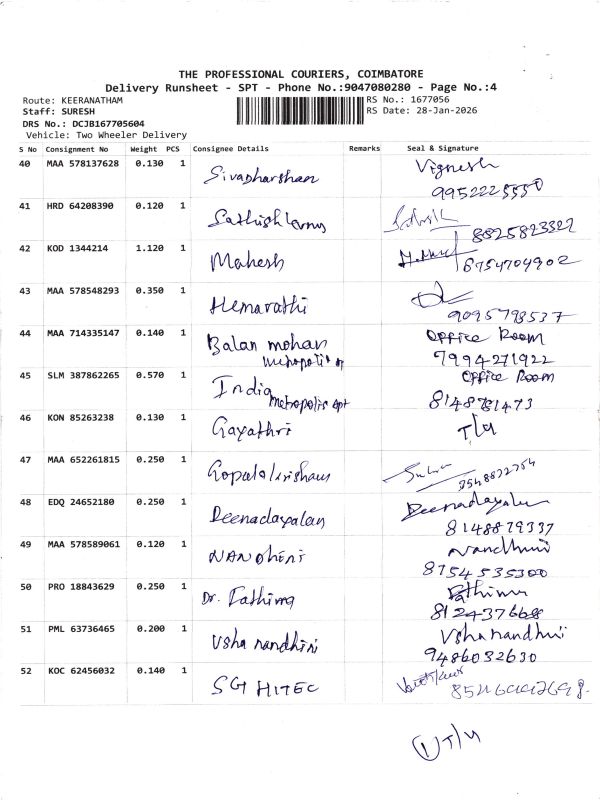 THE PROFESSIONAL COURIERS, COIMBATORE
Delivery Runsheet - SPT - Phone No.:9047080280 - Page No.:4
Route: KEERANATHAM
Staff: SURESH
DRS No.: DCJB167705604
Vehicle: Two Wheeler Delivery
RS No.: 1677056
RS Date: 28-Jan-2026
S No Consignment No Weight PCS Consignee Details Remarks Seal & Signature
40 MAA 578137628 0.130 1 Sivadharshan Vignesh
41 HRD 64208390 0.120 1 8825823322
42 KOD 1344214 1.120 1 Mahesh 8754704902
43 MAA 578548293 0.350 1 Hemarathi
9095793537
44 MAA 714335147 0.140 1 Balan mohan Office Room
7994271922
45 SLM 387862265 0.570 1 India Office Room
Metropolis Apt 8148781473
46 KON 85263238 0.130 1 Gayathri
47 MAA 652261815 0.250 1
48 EDQ 24652180 0.250 1 Deenadayalan Deenadayalan
8148879337
49 MAA 578589061 0.120 1 NANDHINI Nandhini
8754535300
50 PRO 18843629 0.250 1 Dr. Fathima Fathima
812437668
51 PML 63736465 0.200 1 Usha nandhini Usha nandhini
9486032630
52 KOC 62456032 0.140 1 SG HITEC